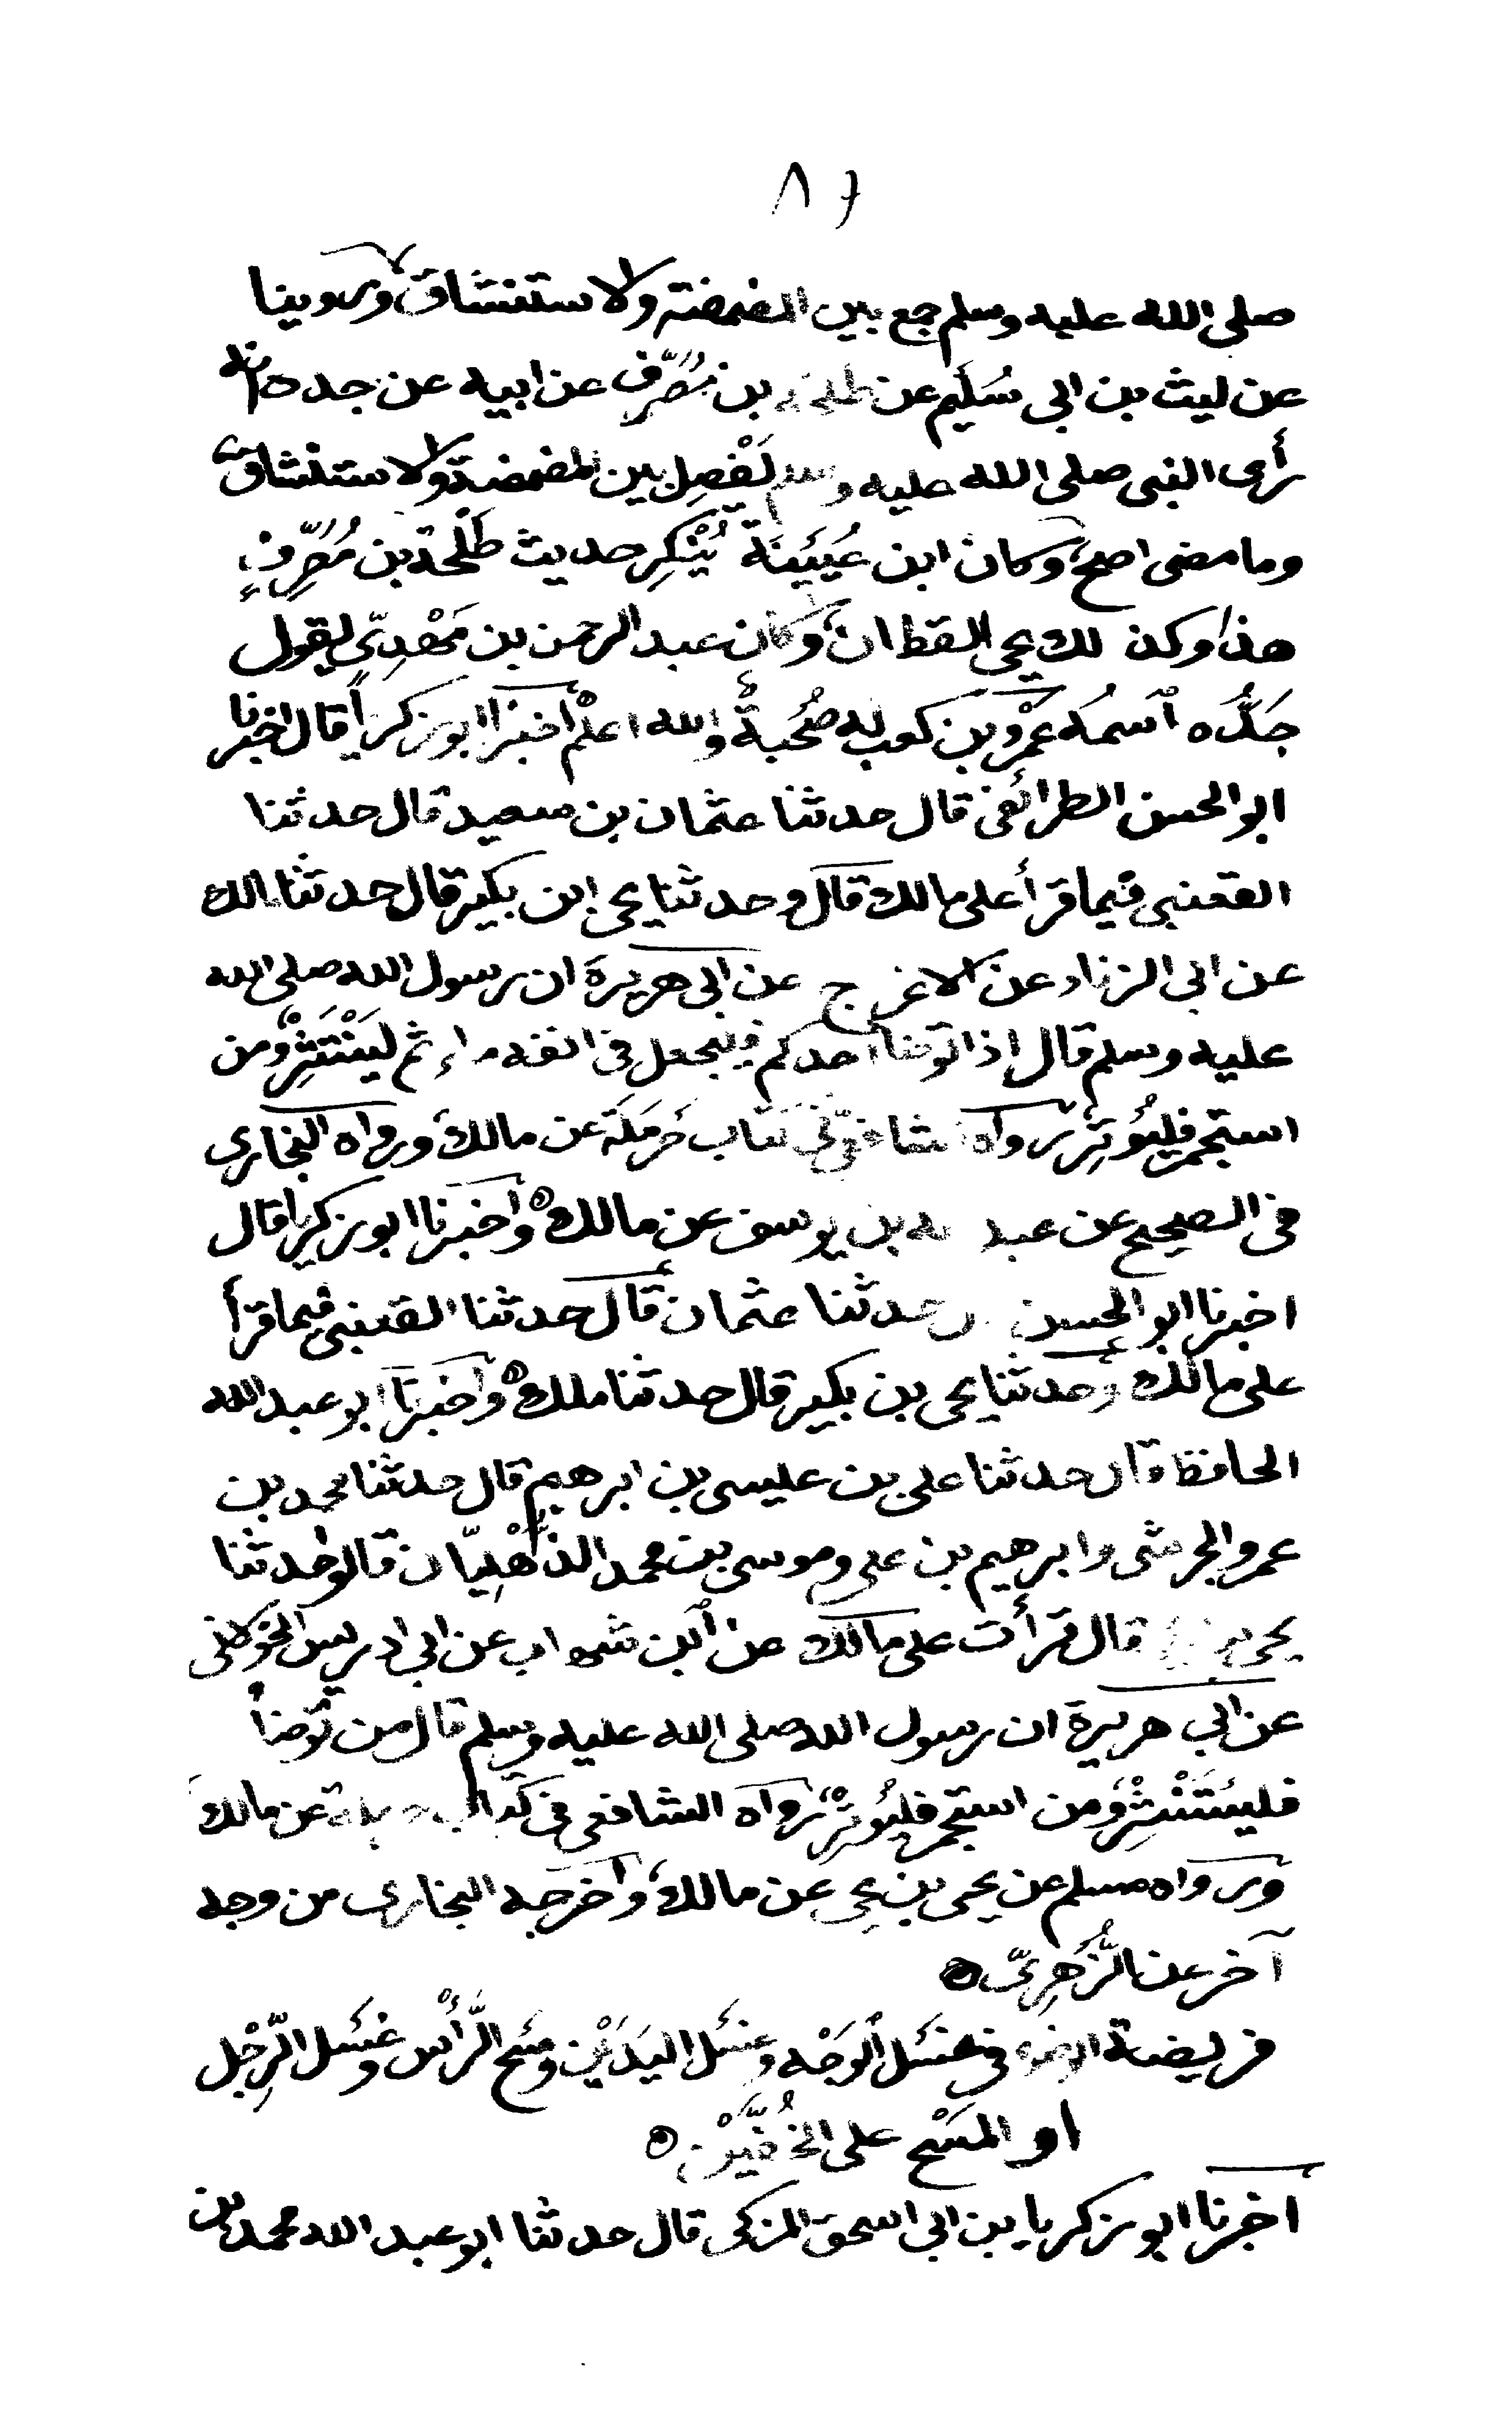 ٨٦
صلى الله عليه وسلم جمع بين المضمضة والاستنشاق وروينا
عن ليث بن ابى سُلَيم عن طلحة بن مُصَرِّف عن ابيه عن جده انه
رأى النبى صلى الله عليه وسلم يَفْصِل بين المضمضة والاستنشاق
وما مضى اصح وكان ابن عُيَيْنَة يُنْكِر حديث طَلْحة بن مُصَرِّفٍ
هذا وكذلك يحيى القطان وكان عبد الرحمن بن مَهْدِيّ يقول
جَدُّه اسمُه عَمْرو بن كعب له صُحْبةٌ والله اعلم اخبرنا ابو زكريا قال اخبرنا
ابو الحسن الطرائفى قال حدثنا عثمان بن سعيد قال حدثنا
القعنبى فيما قرأ على مالك قال وحدثنا يحيى ابن بكير قال حدثنا مالك
عن ابى الزناد عن الاعرج عن ابى هريرة ان رسول الله صلى الله
عليه وسلم قال اذا توضأ احدكم فليجعل فى انفه ماء ثم ليَنْتَثِرْ ومن
استجمر فليُوتِرْ رواه الشافعىّ فى كتاب حَرمَلَة عن مالك ورواه البخارى
فى الصحيح عن عبد الله بن يوسف عن مالك ه واخبرنا ابو زكريا قال
اخبرنا ابو الحسن حدثنا عثمان قال حدثنا القعنبى فيما قرأ
على مالك وحدثنا يحيى بن بكير قال حدثنا ملك ه واخبرنا ابو عبد الله
الحافظ قال حدثنا على بن عيسى بن ابرهيم قال حدثنا محمد بن
عمرو الجرشى وابرهيم بن على وموسى بن محمد الذُّهْلِيّان قالوا حدثنا
يحيى بن يحيى قال قرأت على مالك عن ابن شهاب عن ابى ادريس الخَوْلانى
عن ابى هريرة ان رسول الله صلى الله عليه وسلم قال من توضأ
فليَسْتَنْثِرْ ومن استجمر فليُوتِرْ رواه الشافعى فى كتاب حرملة عن مالك
ورواه مسلم عن يحيى بن يحيى عن مالك واخرجه البخارى من وجه
آخر عن الزُّهرِىّ ه
فريضة الوضوء فى غَسْل الوَجْه وغَسْل اليَدَيْن ومَسْح الرَّأْس وغَسْل الرِّجْل
او المَسْح على الخُفَّيْن ه
اخبرنا ابو زكريا بن ابى اسحق المزكى قال حدثنا ابو عبد الله محمد بن